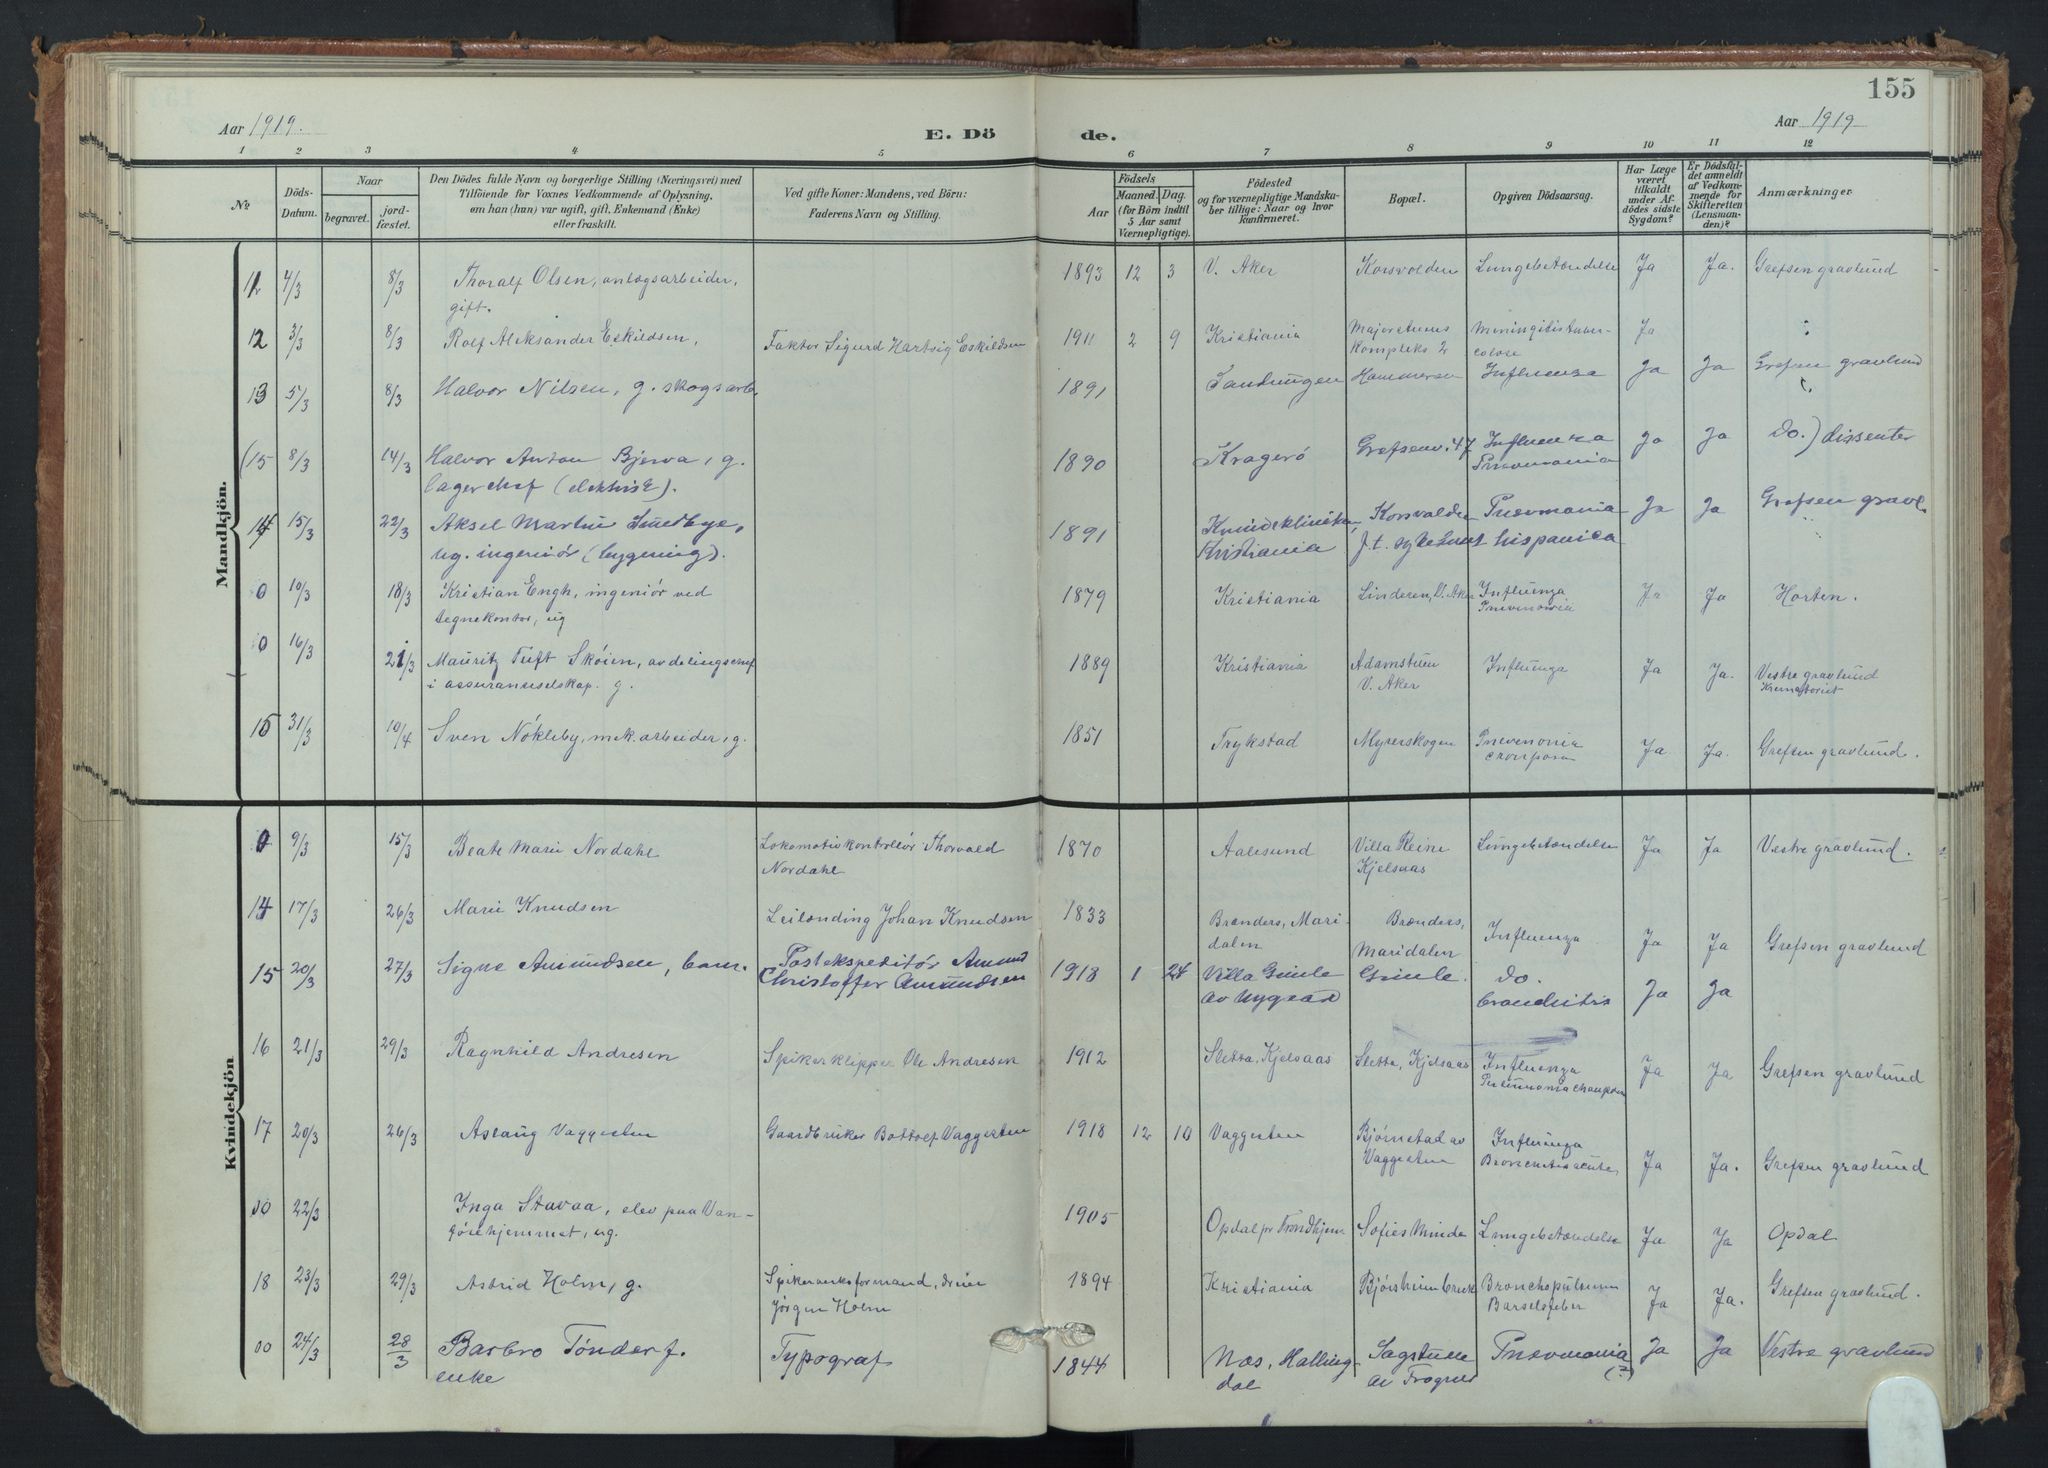 155
Aar 1919.
E. Dö
de.
Aar 1919
1 2 3 4 5 6 7 8 9 10 11 12
№
Döds-
Datum.
Naar
begravet.
jord-
fæstet.
Den Dödes fulde Navn og borgerlige Stilling (Næringsvei) med
Tilföiende for Voxnes Vedkommende af Oplysning,
om han (hun) var ugift, gift, Enkemand (Enke)
eller fraskilt.
Ved gifte Koner: Mandens, ved Börn:
Faderens Navn og Stilling.
Födsels
Aar
Maaned.
Dag.
(for Börn indtil
5 Aar samt
Værnepligtige).
Födested
og for værnepligtige Mandska-
ber tillige: Naar og hvor
konfirmeret.
Bopæl.
Opgiven Dödsaarsag.
Har Læge
været
tilkaldt
under Af-
dödes sidste
Sygdom?
Er Dödsfal-
det anmeldt
af Vedkom-
mende for
Skifteretten
(Lensman-
den)?
Anmærkninger
Mandkjön.
11 4/3 8/3 Thoralf Olsen, anlægsarbeider, 1893 12 3 V. Aker Korsvolden Lungebetændelse Ja Ja. Grefsen gravlund
gift.
12 3/3 8/3 Rolf Aleksander Eskildsen, Faktor Sigurd Hartvig Eskildsen 1911 2 9 Kristiania Majorstuens Meningitis tuber- Ja
kompleks 2 culose
13 5/3 8/3 Halvor Nilsen, g. skogsarb. 1891 Sandungen Hammeren Influenza Ja Ja Grefsen gravlund
(15 8/3 14/3 Halvor Anton Bjerva, g. 1890 Kragerö Grefsenv. 47 Influenza Ja Ja Do.) dissenter
lagerchef (elektrisk). Pnevmonia
14 15/3 22/3 Aksel Martin Smedbye, 1891 Kvindekliniken, Korsvolden Pnevmonia Ja Ja Grefsen gravl.
ug. ingeniör (bygning). Kristiania f.t. sykehuset hispanica
0 10/3 18/3 Kristian Engh, ingeniör ved 1879 Kristiania Linderen, V. Aker Influenza Ja Ja Horten.
tegnekontor, ug Pnevmonia
0 16/3 21/3 Mauritz Tuft Sköien, avdelingschef 1889 Kristiania Adamstuen Influenza Ja Ja. Vestre gravlund
i assuranseselskap. g. V. Aker Krematoriet
15 31/3 10/4 Sven Nökleby, mek. arbeider, g. 1851 Trykstad Myrerskogen Pnevmonia Ja Ja. Grefsen gravlund.
crouposa
Kvindekjön
0 9/3 15/3 Beate Marie Nordahl Lokomotivkontrollör Thorvald 1870 Aalesund Villa Reine Lungebetændelse Ja Ja Vestre gravlund.
Nordahl Kjelsaas
14 17/3 26/3 Marie Knudsen Leilending Johan Knudsen 1833 Brænders, Mari- Brænders, Influenza Ja Ja Grefsen gravlund
dalen Maridalen
15 20/3 27/3 Signe Amundsen, barn. Postekspeditör Amund 1918 1 24 Villa Gimle Gimle. Do. Ja Ja
Christoffer Amundsen av Nygaard bronchitis
16 21/3 29/3 Ragnhild Andresen Spikerklipper Ole Andresen 1912 Sletta, Kjelsaas Sletta, Kjelsaas Influenza Ja Ja Grefsen gravlund
Pneumonia crouposa
17 20/3 26/3 Aslaug Vaggesten Gaardbruker Bottolf Vaggesten 1918 12 10 Vaggesten Bjørnstad av Influenza Ja Ja. Grefsen gravlund
Vaggesten Bronchitis acuta
00 22/3 Inga Stavaa, elev paa Van- 1905 Opdal pr Trondhjem Sofies Minde Lungebetændelse Ja Ja Opdal
förehjemmet, ug.
18 23/3 29/3 Astrid Holm, g. Spikerverksformand, dreier 1894 Kristiania Bjørsheim bruk Bronchopneum Ja Ja. Grefsen gravlund.
Jörgen Holm Barselfeber
00 24/3 28/3 Barbro Tönder f. Typograf 1844 Næs, Halling- Sagstuen Pnevmonia Ja Ja Vestre gravlund
enke dal av Frogner (?)